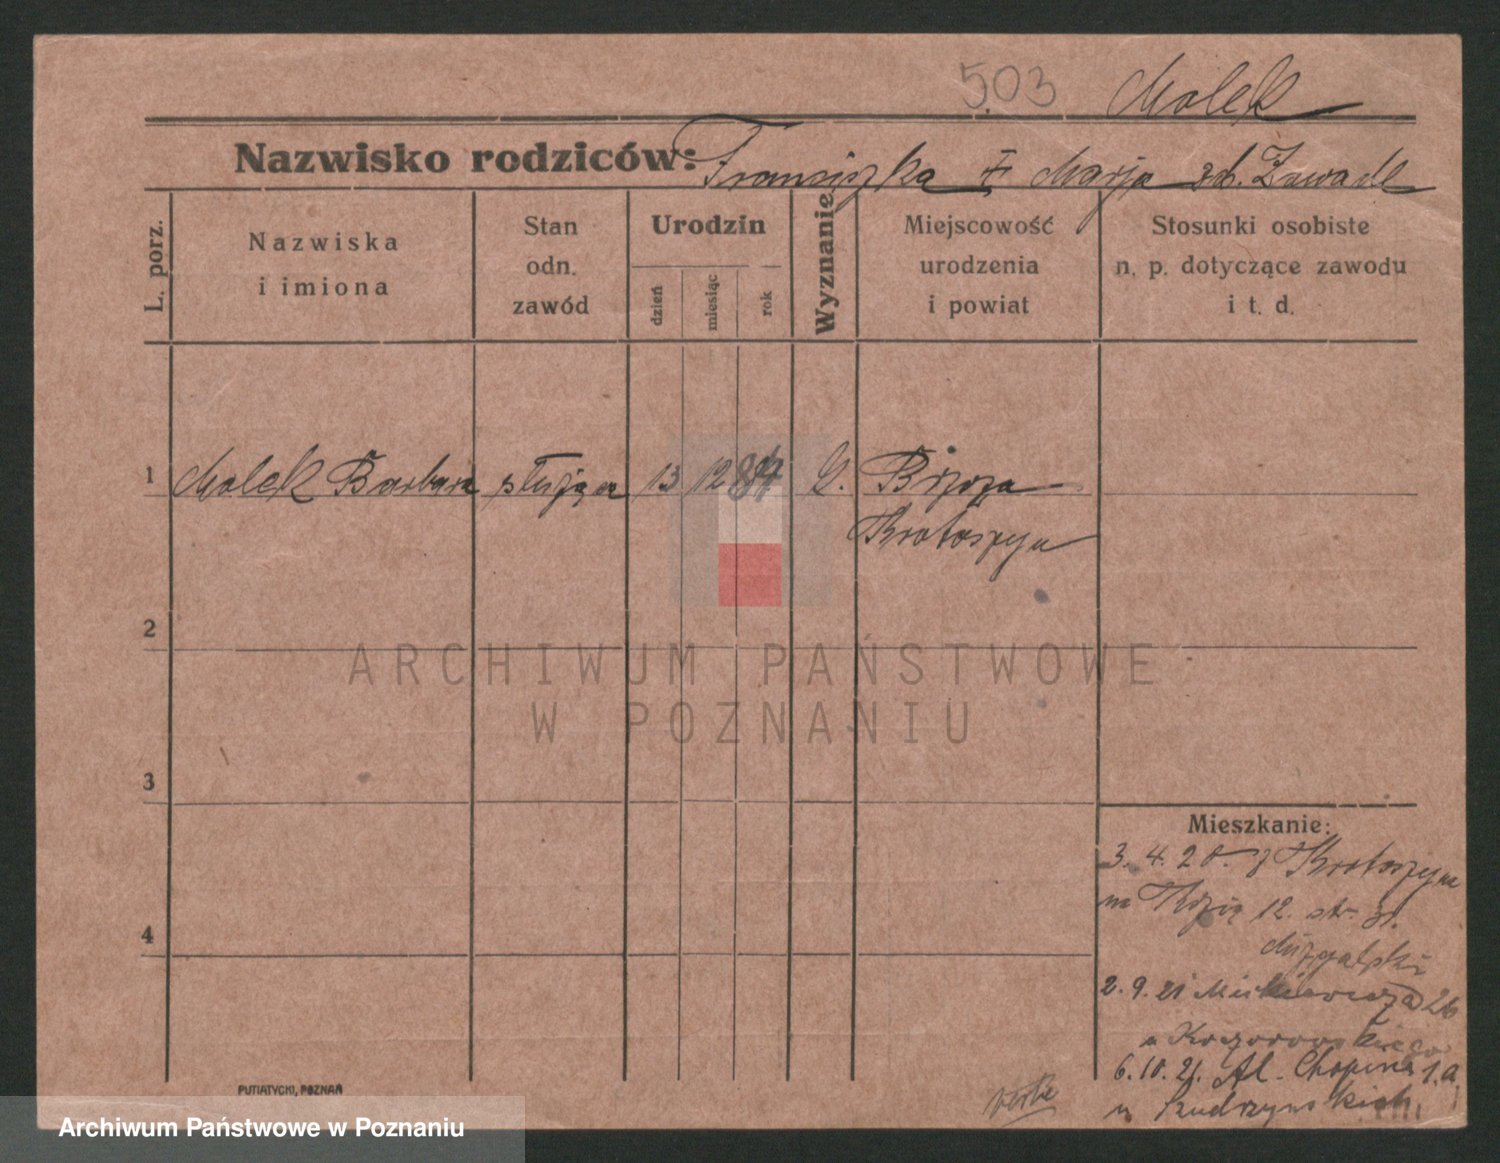 503 Molek
Nazwisko rodziców: Franciszka i Marja zd. Zawade
L. porz.
Nazwiska i imiona
Stan odn. zawód
Urodzin
dzień
miesiąc
rok
Wyznanie
Miejscowość urodzenia i powiat
Stosunki osobiste n. p. dotyczące zawodu i t. d.
1 Molek Barbara służąca 13 12 84
Krotoszyn
2
ARCHIWUM PAŃSTWOWE
W POZNANIU
3
Mieszkanie:
3. 4. 20. z Krotoszyna
12. str.
4
2. 9. 21 Mickiewicza 26
6. 10. 21. Al. Chopina 1.a
verte
PUTIATYCKI, POZNAŃ
Archiwum Państwowe w Poznaniu